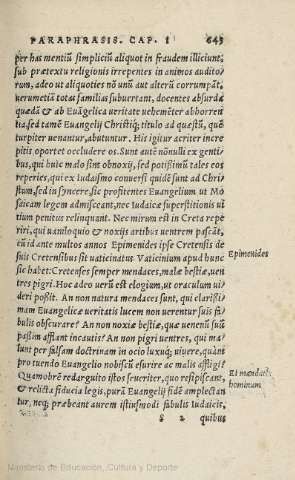 PARAPHRASIS. CAP. I 645
per has mentiū simpliciū aliquot in fraudem illiciunt,
sub prætextu religionis irrepentes in animos audito/
rum, adeo ut aliquoties nō unū aut alterū corrumpāt,
uerumetiā totas familias subuertant, docentes absurda
quædā & ab Euāgelica ueritate uehemēter abhorren
tia, sed tamē Euangelij Christiq; titulo ad quæstū, quo
turpiter uenantur, abutuntur. His igitur acriter incre
pitis oportet occludere os. Sunt autē nōnulli ex genti/
bus, qui huic malo sint obnoxij, sed potissimū tales eos
reperies, qui ex Iudaismo conuersi quidē sunt ad Chri
stum, sed insyncere, sic profitentes Euangelium ut Mo
saicam legem admisceant, nec Iudaicæ superstitionis ui
tium penitus relinquant. Nec mirum est in Creta repe
riri, qui uaniloquio & noxijs artibus uentrem pascāt,
cū id ante multos annos Epimenides ipse Cretensis de
suis Cretensibus sit uaticinatus. Vaticinium apud hunc
sic habet: Cretenses semper mendaces, malæ bestiæ, uen
tres pigri. Hoc adeo uerū est elogium, ut oraculum ui/
deri possit. An non natura mendaces sunt, qui clarissi/
mam Euangelicæ ueritatis lucem non uerentur suis fa/
bulis obscurare? An non noxiæ bestiæ, quæ uenenū suū
passim afflant incautis? An non pigri uentres, qui ma/
lunt per falsam doctrinam in ocio luxuq; uiuere, quàm
pro tuendo Euangelio nobiscū esurire ac malis affligi?
Quamobrē redarguito istos seueriter, quo resipiscant,
& relicta fiducia legis, purā Euangelij fidē amplectan
tur, neq; præbeant aurem istiusmodi fabulis Iudaicis,
Epimenides
Et mandatis
hominum
s 2 quibus
Ministerio de Educación, Cultura y Deporte